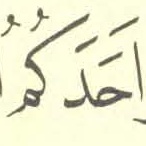 اَحَدَكُمُ